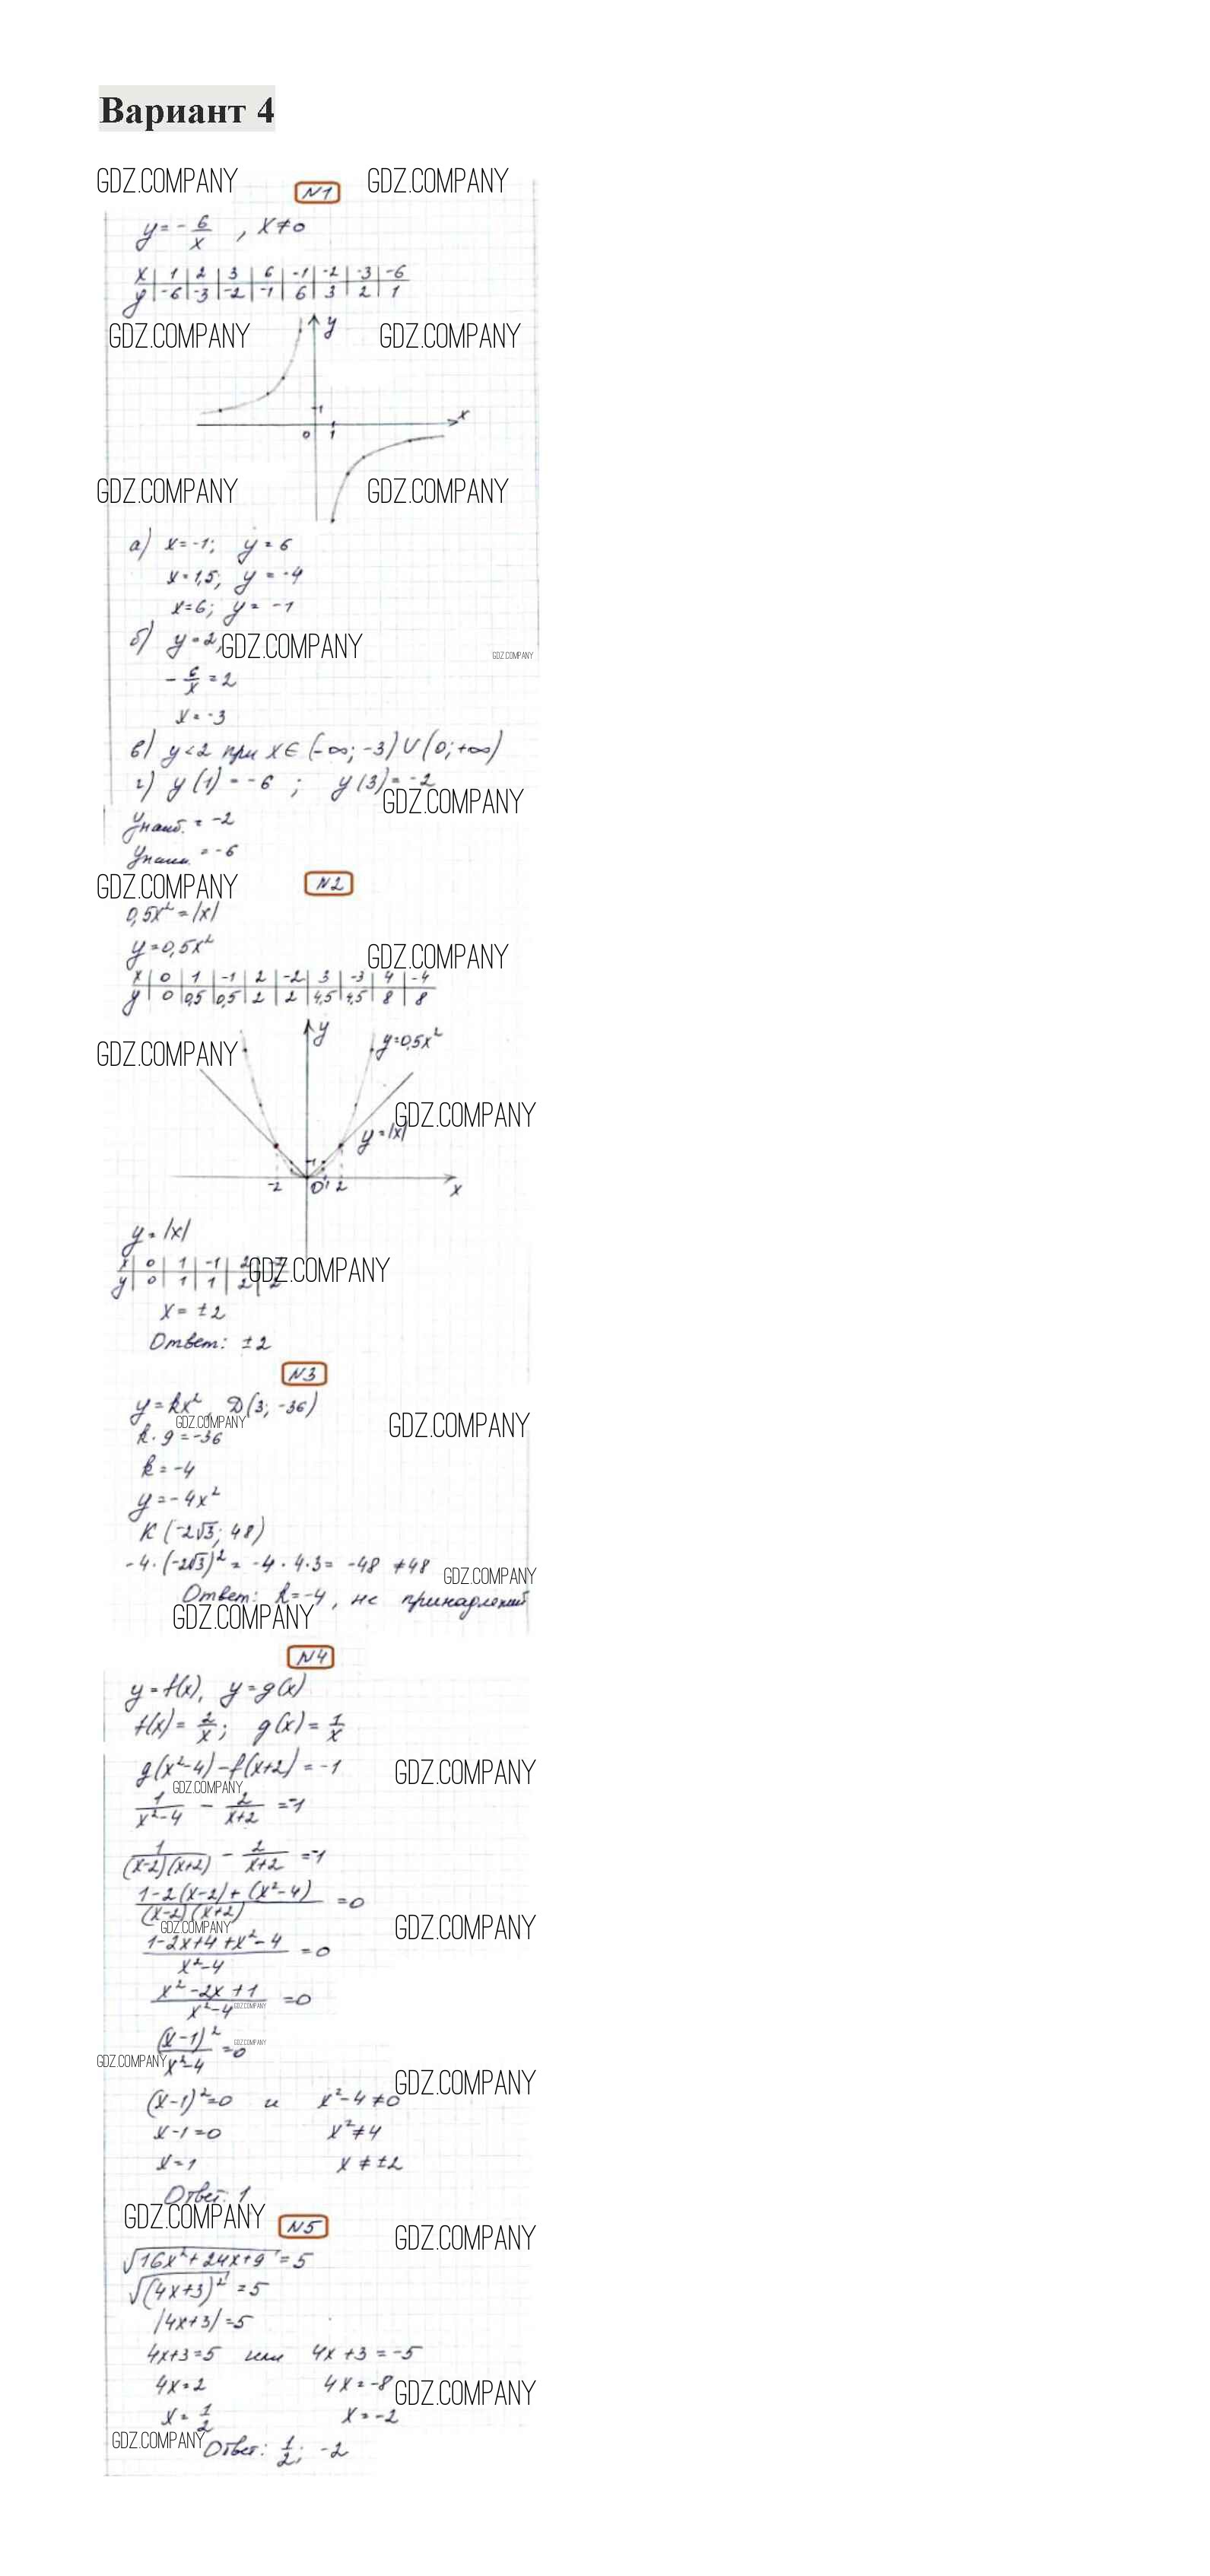 Вариант 4
GDZ.COMPANY GDZ.COMPANY
N1
y = - 6/x , x ≠ 0
x | 1 | 2 | 3 | 6 | -1 | -2 | -3 | -6
y | -6 | -3 | -2 | -1 | 6 | 3 | 2 | 1
GDZ.COMPANY y GDZ.COMPANY
1 x
0 1
GDZ.COMPANY GDZ.COMPANY
а) x = -1; y = 6
x = 1,5; y = -4
x = 6; y = -1
б) y = 2, GDZ.COMPANY
GDZ.COMPANY
- 6/x = 2
x = -3
в) y < 2 при x ∈ (-∞; -3) ∪ (0; +∞)
г) y(1) = -6 ; y(3) = -2
GDZ.COMPANY
yнаиб. = -2
yнаим. = -6
GDZ.COMPANY N2
0,5x² = |x|
y = 0,5x² GDZ.COMPANY
x | 0 | 1 | -1 | 2 | -2 | 3 | -3 | 4 | -4
y | 0 | 0,5 | 0,5 | 2 | 2 | 4,5 | 4,5 | 8 | 8
y
GDZ.COMPANY y=0,5x²
GDZ.COMPANY
y=|x|
1
-2 0 1 2 x
y = |x|
x | 0 | 1 | -1 | 2 |
GDZ.COMPANY
y | 0 | 1 | 1 | 2 | 2
x = ±2
Ответ: ±2
N3
y = kx², D(3; -36)
GDZ.COMPANY GDZ.COMPANY
k · 9 = -36
k = -4
y = -4x²
K (-2√3; 48)
-4 · (-2√3)² = -4 · 4 · 3 = -48 ≠ 48
GDZ.COMPANY
Ответ: k = -4, не принадлежит
GDZ.COMPANY
N4
y = f(x), y = g(x)
f(x) = 2/x; g(x) = 1/x
g(x²-4) - f(x+2) = -1 GDZ.COMPANY
GDZ.COMPANY
1/(x²-4) - 2/(x+2) = -1
1/((x-2)(x+2)) - 2/(x+2) = -1
(1-2(x-2)+(x²-4))/((x-2)(x+2)) = 0
GDZ.COMPANY GDZ.COMPANY
(1-2x+4+x²-4)/(x²-4) = 0
(x²-2x+1)/(x²-4) = 0
GDZ.COMPANY
(x-1)²/(x²-4) = 0
GDZ.COMPANY
GDZ.COMPANY
GDZ.COMPANY
(x-1)² = 0 и x²-4 ≠ 0
x-1 = 0 x² ≠ 4
x = 1 x ≠ ±2
Ответ: 1
GDZ.COMPANY N5 GDZ.COMPANY
√(16x²+24x+9) = 5
√((4x+3)²) = 5
|4x+3| = 5
4x+3 = 5 или 4x+3 = -5
4x = 2 4x = -8 GDZ.COMPANY
x = 1/2 x = -2
GDZ.COMPANY Ответ: 1/2; -2